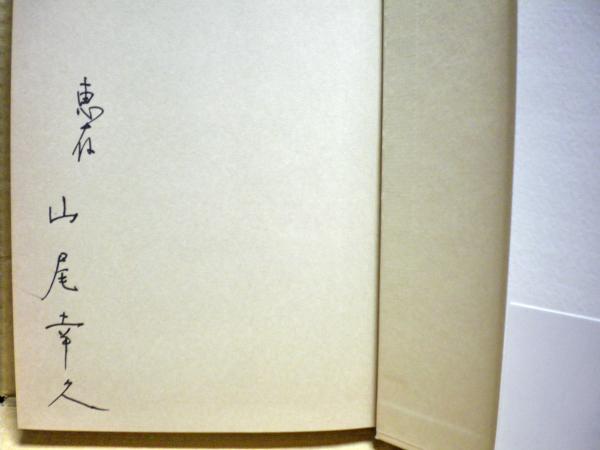 恵存
山尾幸久